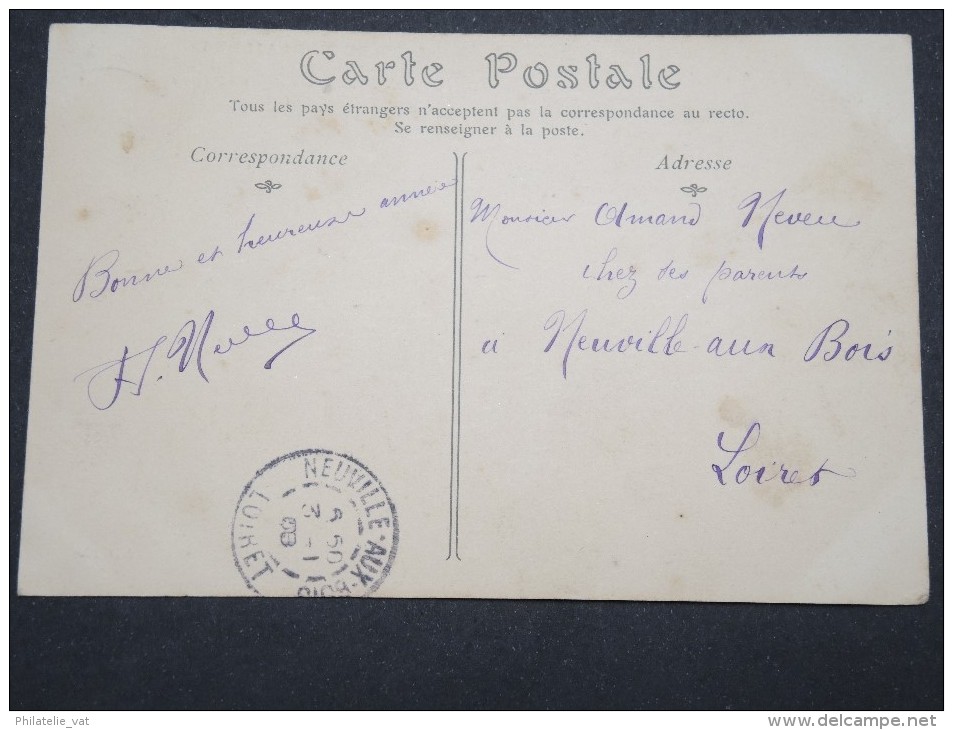 Carte Postale
Tous les pays étrangers n'acceptent pas la correspondance au recto.
Se renseigner à la poste.
Correspondance
Bonne et heureuse année
Adresse
Monsieur Amand Neveu
chez ses parents
à Neuville-aux Bois
Loiret
NEUVILLE-AUX-BOIS
LOIRET
Philatelie_vat
www.delcampe.net